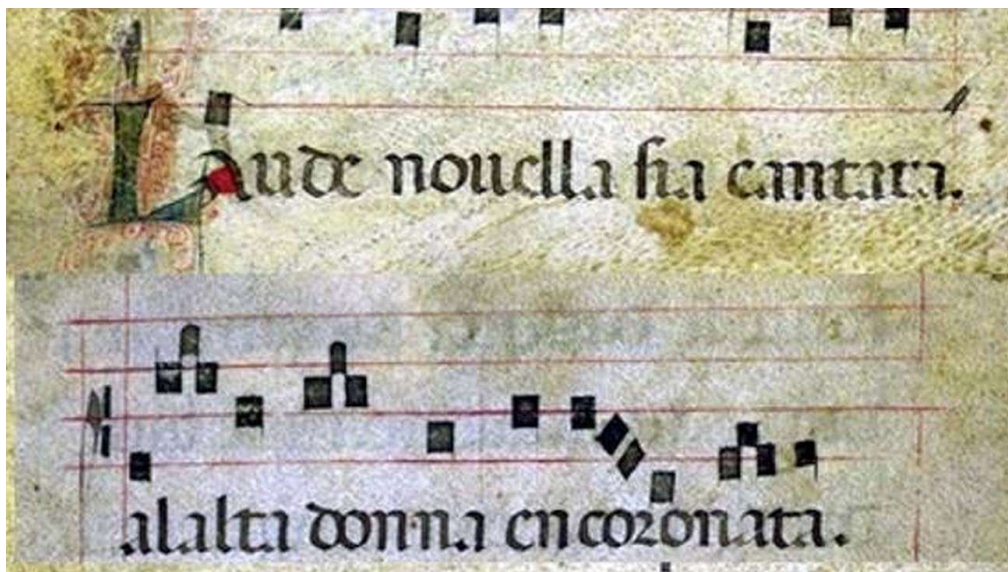 Laude nouella sia cantata.
alalta donna encoronata.